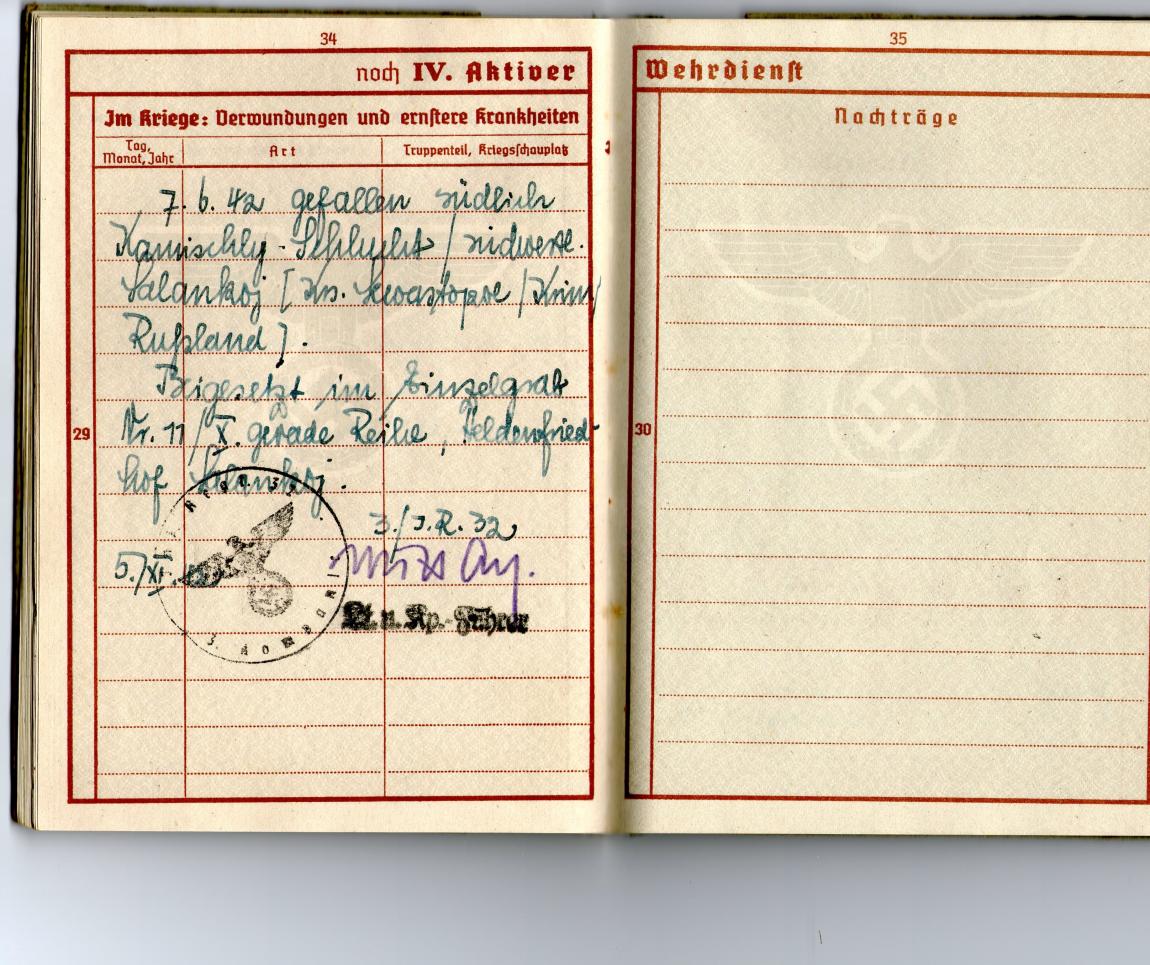 34
noch IV. Aktiver
Im Kriege: Verwundungen und ernstere Krankheiten
Tag, Monat, Jahr
Art
Truppenteil, Kriegsschauplatz
29
7. 6. 42 gefallen südlich
Kamischly-Schlucht / südwestl.
Salankoj [Krs. Sewastopol / Krim /
Rußland].
Beigesetzt im Einzelgrab
Nr. 11 / X. gerade Reihe, Heldenfried-
hof Salankoj.
3./J.R. 32
5./XI.
Lt. u. Kp.-Führer
3. Kompanie
35
Wehrdienst
Nachträge
30